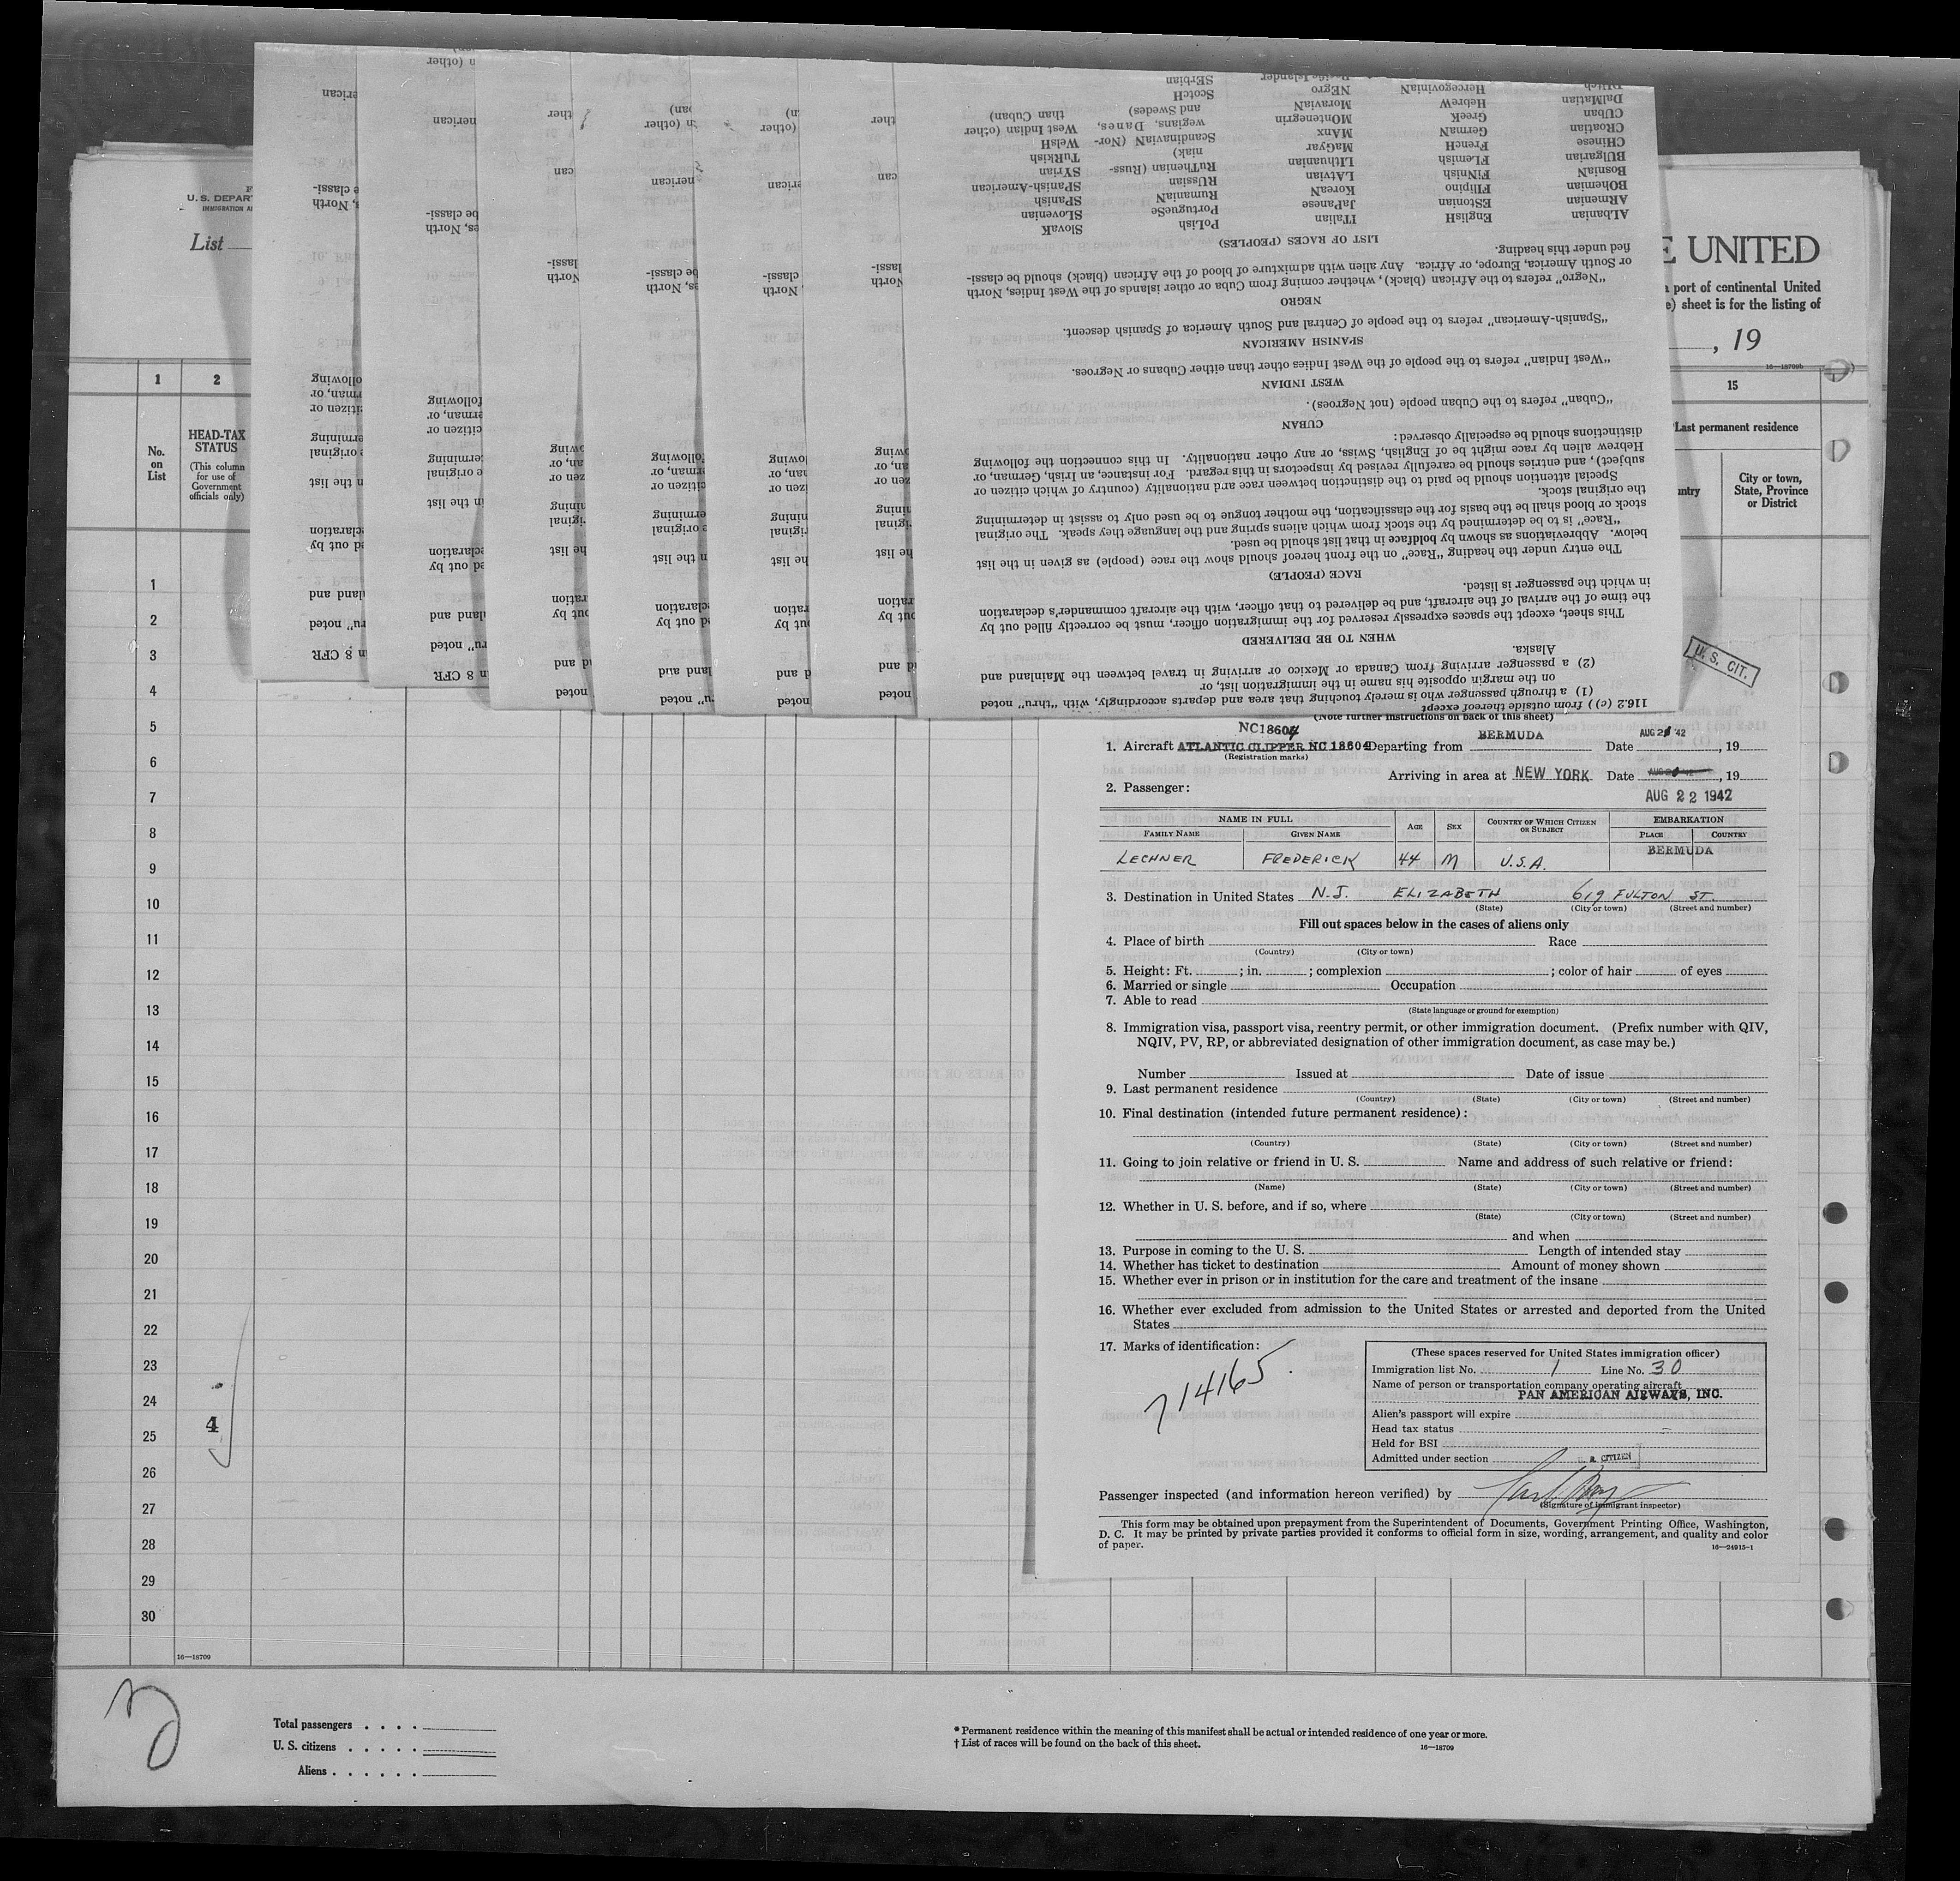 U. S. DEPAR
IMMIGRATION A
List
E UNITED
a port of continental United
e) sheet is for the listing of
, 19
16—18709b
1
2
15
No.
on
List
HEAD-TAX
STATUS
(This column
for use of
Government
officials only)
*Last permanent residence
ntry
City or town,
State, Province
or District
1
2
3
4
5
6
7
8
9
10
11
12
13
14
15
16
17
18
19
20
21
22
23
24
25
26
27
28
29
30
4
16—18709
Total passengers . . . .
U. S. citizens . . . . .
Aliens . . . . . .
* Permanent residence within the meaning of this manifest shall be actual or intended residence of one year or more.
† List of races will be found on the back of this sheet.
16—18709
U. S. CIT.
116.2 (c) ) from outside thereof except
(1) a through passenger who is merely touching that area and departs accordingly, with “thru” noted
on the margin opposite his name in the immigration list, or
(2) a passenger arriving from Canada or Mexico or arriving in travel between the Mainland and
Alaska.
WHEN TO BE DELIVERED
This sheet, except the spaces expressly reserved for the immigration officer, must be correctly filled out by
the time of the arrival of the aircraft, and be delivered to that officer, with the aircraft commander's declaration
in which the passenger is listed.
RACE (PEOPLE)
The entry under the heading “Race” on the front hereof should show the race (people) as given in the list
below. Abbreviations as shown by boldface in that list should be used.
“Race” is to be determined by the stock from which aliens spring and the language they speak. The original
stock or blood shall be the basis for the classification, the mother tongue to be used only to assist in determining
the original stock.
Special attention should be paid to the distinction between race and nationality (country of which citizen or
subject), and entries should be carefully revised by inspectors in this regard. For instance, an Irish, German, or
Hebrew alien by race might be of English, Swiss, or any other nationality. In this connection the following
distinctions should be especially observed:
CUBAN
“Cuban” refers to the Cuban people (not Negroes).
WEST INDIAN
“West Indian” refers to the people of the West Indies other than either Cubans or Negroes.
SPANISH AMERICAN
“Spanish-American” refers to the people of Central and South America of Spanish descent.
NEGRO
“Negro” refers to the African (black), whether coming from Cuba or other islands of the West Indies, North
or South America, Europe, or Africa. Any alien with admixture of blood of the African (black) should be classi-
fied under this heading.
LIST OF RACES (PEOPLES)
ALbanian EngliSH ITalian PoLish SlovaK
ARmenian EStonian JaPanese PortugueSe SLOvenian
BOhemian FIlipino KoreaN RumaniaN SPanish
BosniaN FiNnish LAtvian RUssian SPanish-American
BUlgarian FLemish LIthuanian RuThenian (Russ- SYrian
CHinese FrencH MaGyar niak) TuRkish
CROatian GermaN MAnx ScandinaviaN (Nor- WelsH
CUban GreeK MOntenegrin wegians, Danes, West Indian (other
DalMatian HebreW MoraviaN and Swedes) than Cuban)
DUtch HercegoviniaN NEgro ScotcH
Pacific Islander SErbian
(Note further instructions on back of this sheet)
NC18604
1. Aircraft ATLANTIC CLIPPER NC 18604 Departing from BERMUDA Date AUG 21 '42 , 19
(Registration marks)
Arriving in area at NEW YORK Date , 19
2. Passenger: AUG 22 1942
NAME IN FULL
FAMILY NAME GIVEN NAME AGE SEX COUNTRY OF WHICH CITIZEN OR SUBJECT EMBARKATION
PLACE COUNTRY
LECHNER FREDERICK 44 M U.S.A. BERMUDA
3. Destination in United States N.J. ELIZABETH 619 FULTON ST.
(State) (City or town) (Street and number)
Fill out spaces below in the cases of aliens only
4. Place of birth Race
(Country) (City or town)
5. Height: Ft. ; in. ; complexion ; color of hair of eyes
6. Married or single Occupation
7. Able to read
(State language or ground for exemption)
8. Immigration visa, passport visa, reentry permit, or other immigration document. (Prefix number with QIV,
NQIV, PV, RP, or abbreviated designation of other immigration document, as case may be.)
Number Issued at Date of issue
9. Last permanent residence
(Country) (State) (City or town) (Street and number)
10. Final destination (intended future permanent residence):
(Country) (State) (City or town) (Street and number)
11. Going to join relative or friend in U. S. Name and address of such relative or friend:
(Name) (State) (City or town) (Street and number)
12. Whether in U. S. before, and if so, where
(State) (City or town) (Street and number)
and when
13. Purpose in coming to the U. S. Length of intended stay
14. Whether has ticket to destination Amount of money shown
15. Whether ever in prison or in institution for the care and treatment of the insane
16. Whether ever excluded from admission to the United States or arrested and deported from the United
States
17. Marks of identification:
714165.
(These spaces reserved for United States immigration officer)
Immigration list No. 1 Line No. 30
Name of person or transportation company operating aircraft
PAN AMERICAN AIRWAYS, INC.
Alien's passport will expire
Head tax status –
Held for BSI
Admitted under section CITIZEN
Passenger inspected (and information hereon verified) by
(Signature of immigrant inspector)
This form may be obtained upon prepayment from the Superintendent of Documents, Government Printing Office, Washington,
D. C. It may be printed by private parties provided it conforms to official form in size, wording, arrangement, and quality and color
of paper.
16—24915-1